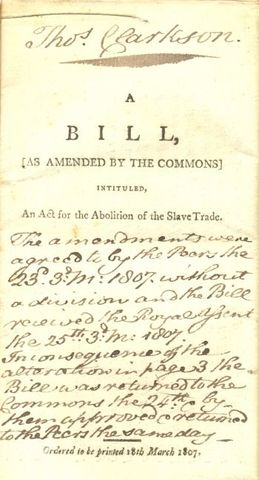 Thos. Clarkson.
A
BILL,
[AS AMENDED BY THE COMMONS]
INTITULED,
An Act for the Abolition of the Slave Trade.
The amendments were
agreed to by the Peers the
23d. 3d. M: 1807. without
a division and the Bill
received the Royal Assent
the 25th 3d M: 1807
In consequence of the
alteration in page 3 the
Bill was returned to the
Commons the 24th & by
them approved & returned
to the Peers the same day
Ordered to be printed 18th March 1807.